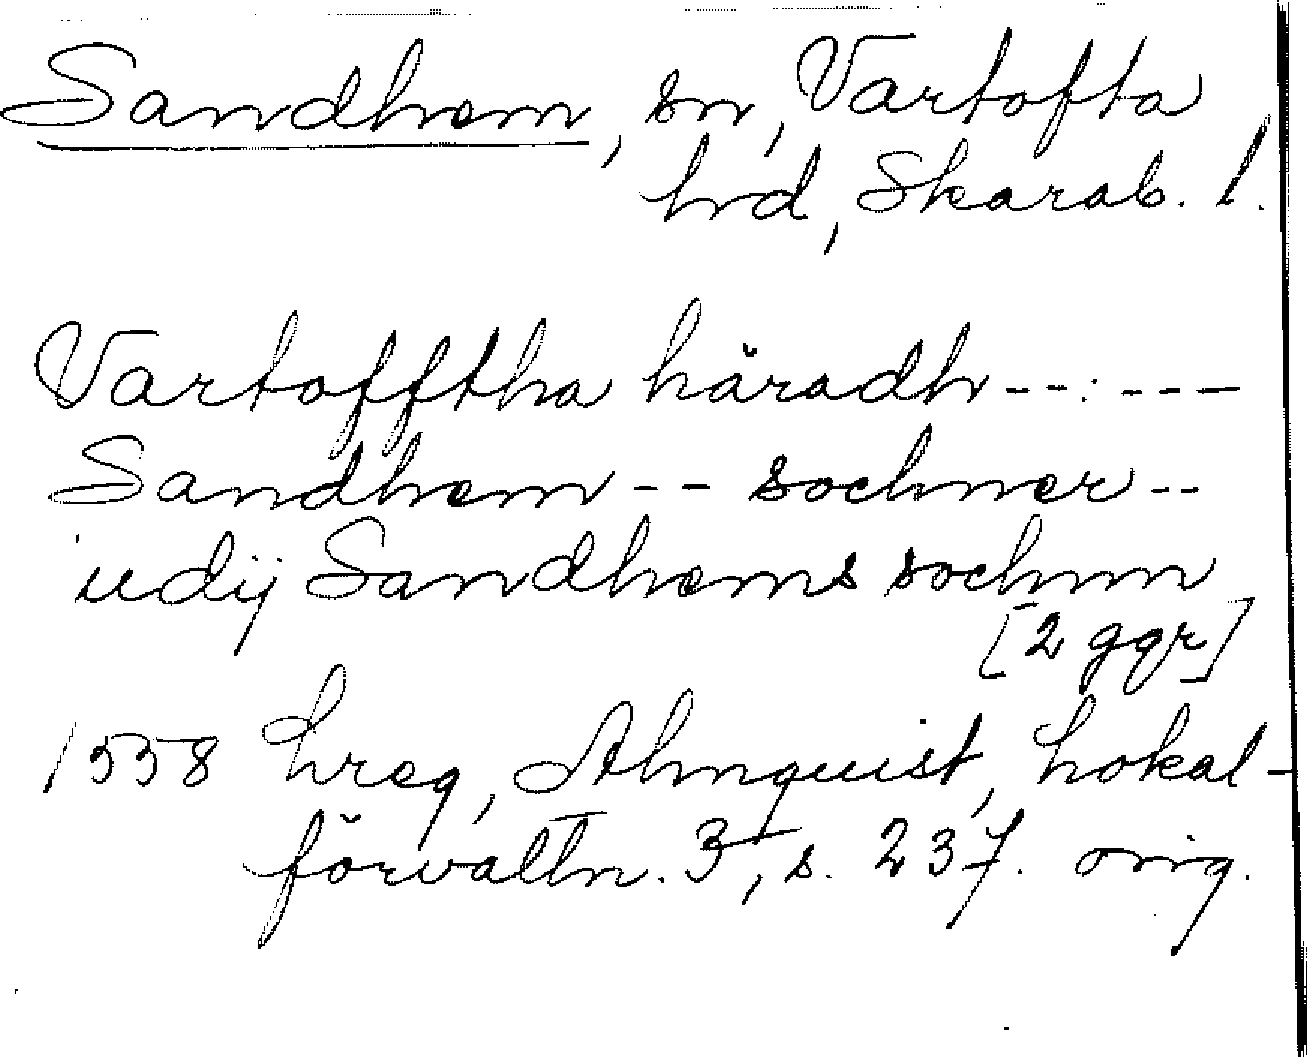 Sandhem, sn, Vartofta
hd, Skarab. l.
Vartofftha häradh -- . ---
Sandhem -- sochner --
udij Sandhems sochnn
[2 ggr]
1558 hreg, Almquist, Lokal-
förvaltn. 3, s. 237. orig.